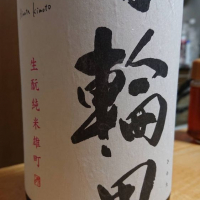 kimoto
日輪田
生酛純米雄町